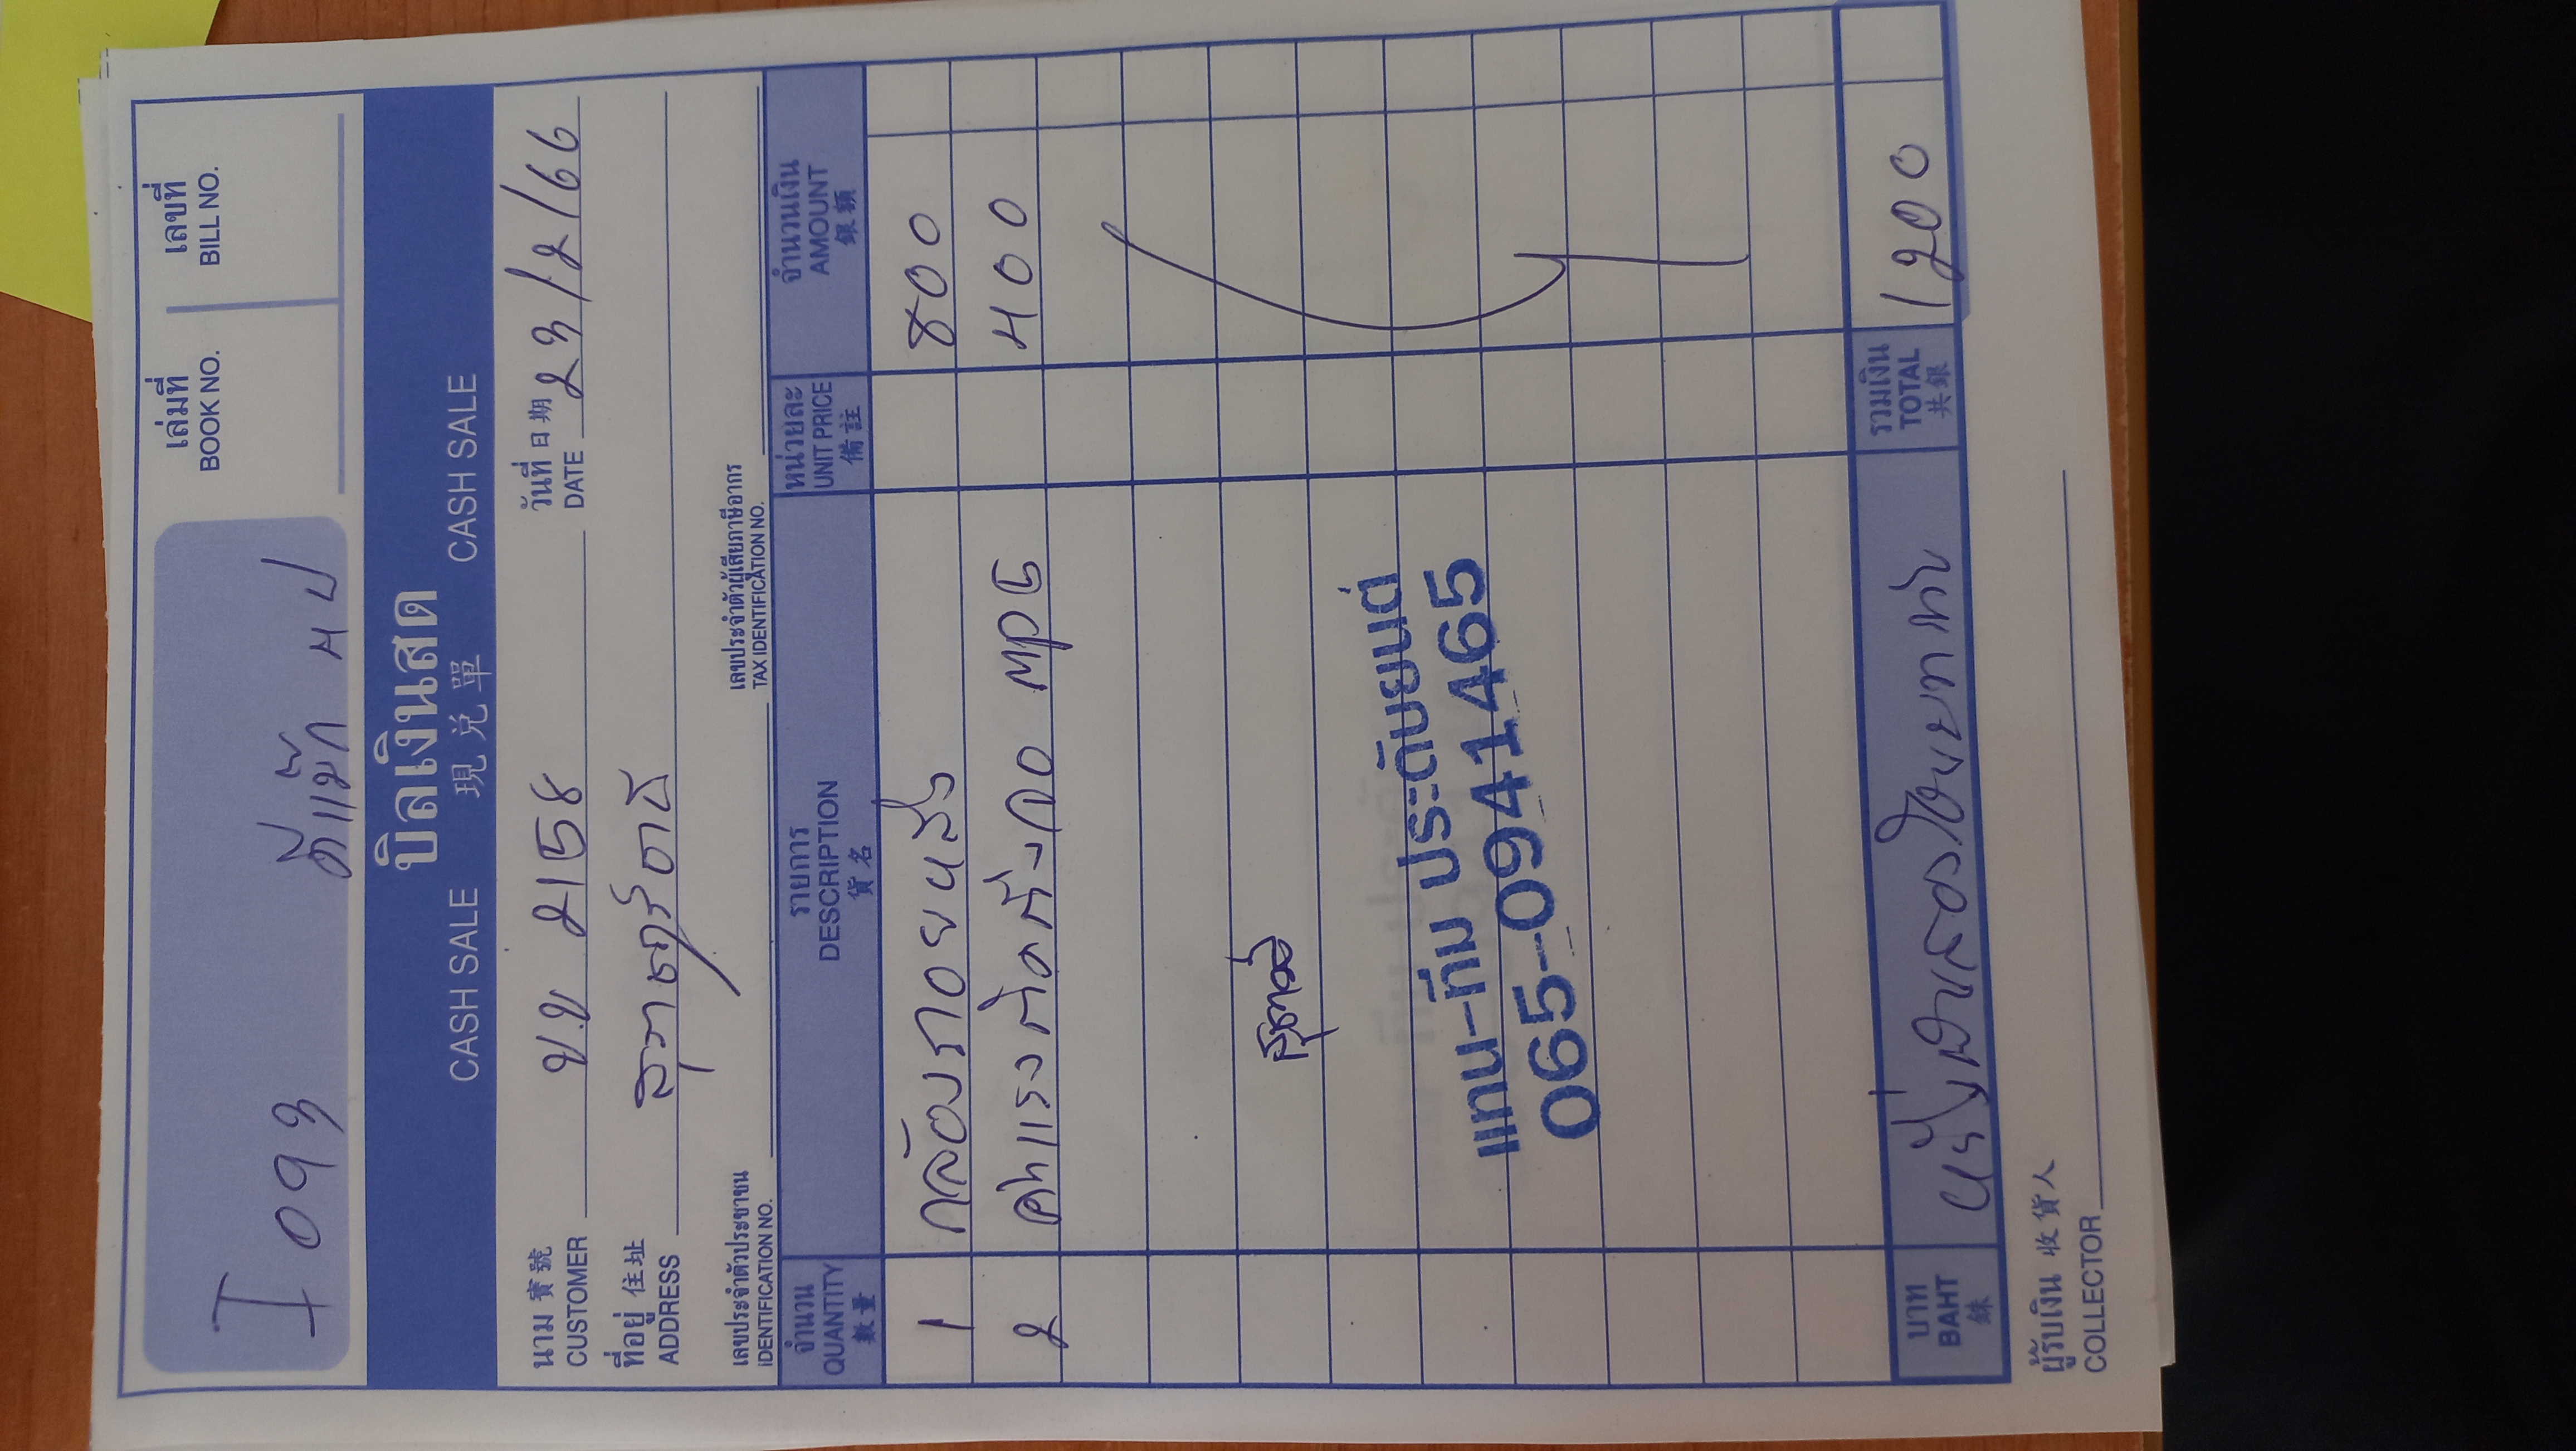 เล่มที่ เลขที่
BOOK NO. BILL NO.
I 093 ดีแม็ก MU
บิลเงินสด
CASH SALE 現兌單 CASH SALE
นาม 寶號 ขข 2158 วันที่ 日期 23/2/66
CUSTOMER DATE
ที่อยู่ 住址 สุราษฎร์ธานี
ADDRESS
เลขประจำตัวประชาชน เลขประจำตัวผู้เสียภาษีอากร
IDENTIFICATION NO. TAX IDENTIFICATION NO.
จำนวน รายการ หน่วยละ จำนวนเงิน
QUANTITY DESCRIPTION UNIT PRICE AMOUNT
數量 貨名 備註 銀額
1 กล้องถอยหลัง 800
2 400
แทน-ทีม ประดับยนต์
065-0941465
บาท รวมเงิน 1200
BAHT หนึ่งพันสองร้อยบาท TOTAL
銖 共銀
ผู้รับเงิน 收貨人
COLLECTOR